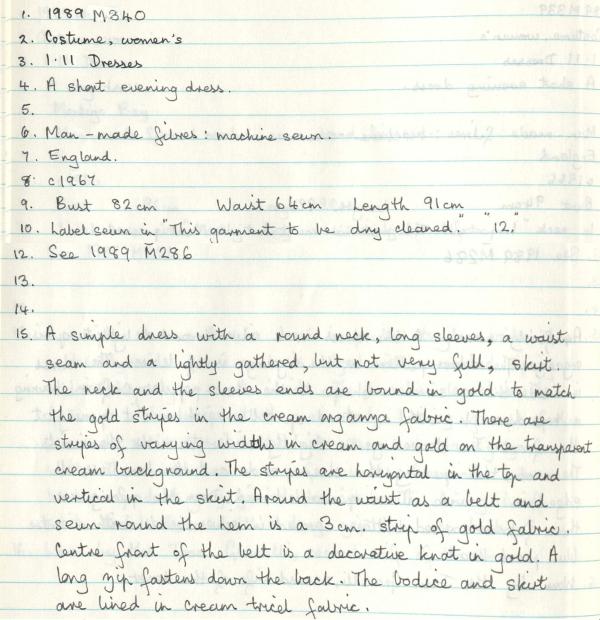 1. 1989 M340
2. Costume, women's
3. 1.11 Dresses
4. A short evening dress.
5.
6. Man-made fibres: machine sewn.
7. England.
8. c1967
9. Bust 82cm Waist 64cm Length 91cm
10. Label sewn in "This garment to be dry cleaned." "12."
12. See 1989 M286
13.
14.
15. A simple dress with a round neck, long sleeves, a waist
seam and a lightly gathered, but not very full, skirt.
The neck and the sleeves ends are bound in gold to match
the gold stripes in the cream organza fabric. There are
stripes of varying widths in cream and gold on the transparent
cream background. The stripes are horizontal in the top and
vertical in the skirt. Around the waist as a belt and
sewn round the hem is a 3cm. strip of gold fabric.
Centre front of the belt is a decorative knot in gold. A
long zip fastens down the back. The bodice and skirt
are lined in cream tricel fabric.